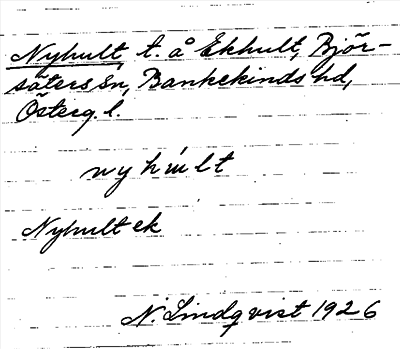 Nyhult, t. å Ekhult, Björ-
säters sn, Bankekinds hd,
Österg. l.
nyhult
Nyhult ek
N. Lindqvist 1926